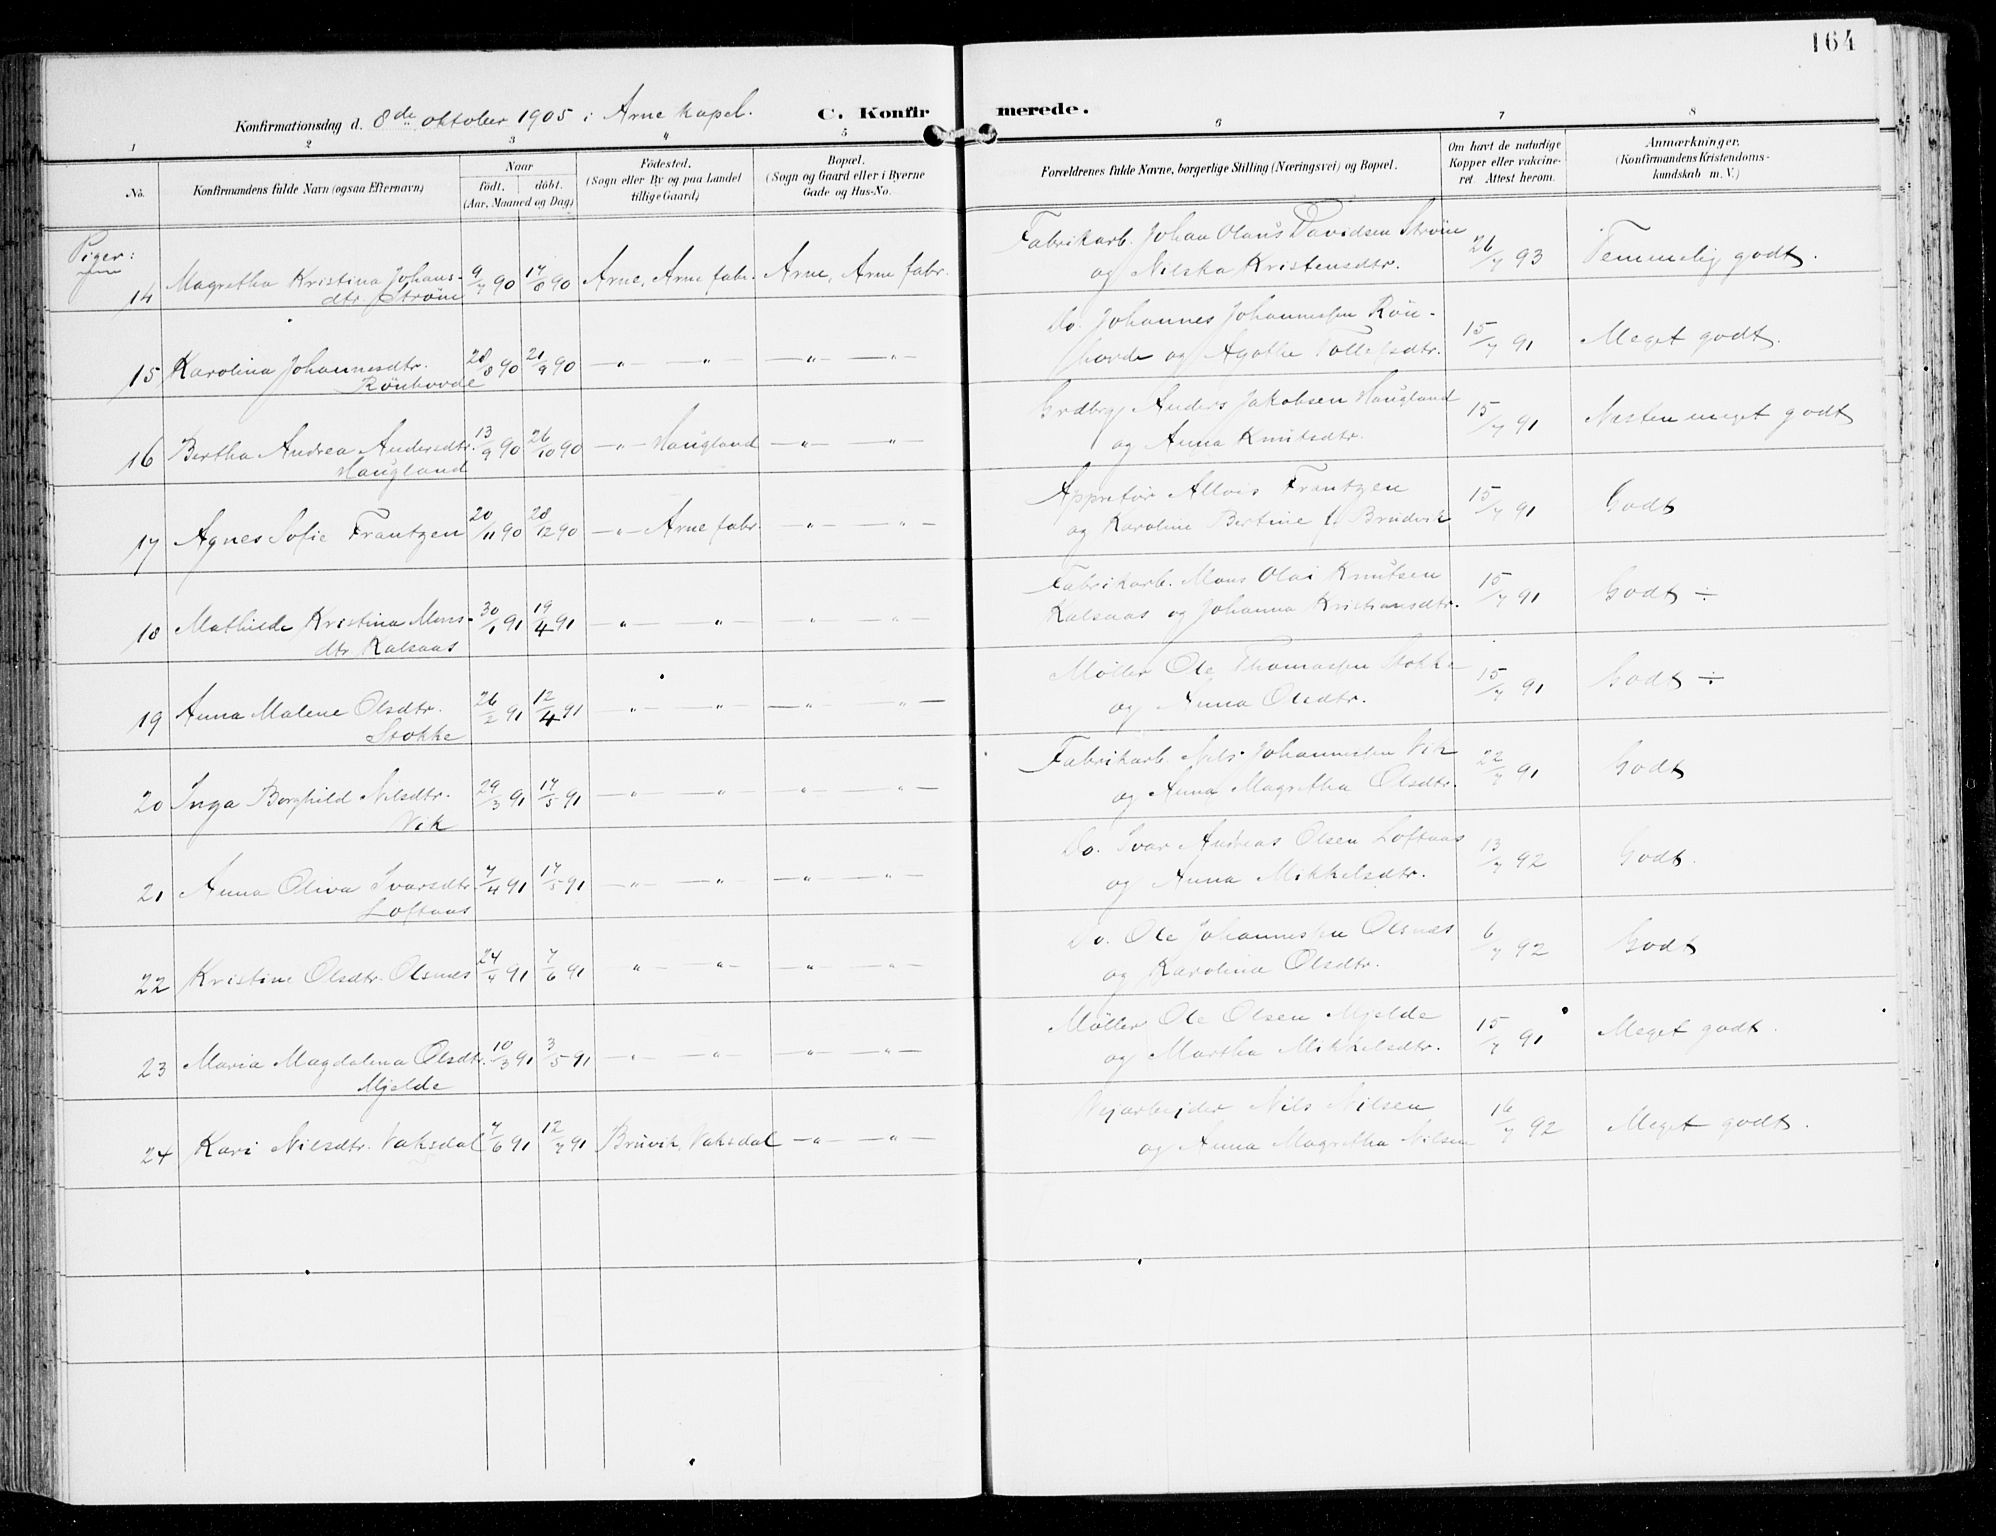 164
Konfirmationsdag d. 8de oktober 1905 i Arne kapel. C. Konfirmerede.
1 2 3 4 5 6 7 8
No. Konfirmandens fulde Navn (ogsaa Efternavn) Naar født. døbt. (Aar, Maaned og Dag) Fødested. (Sogn eller By og paa Landet tillige Gaard) Bopæl. (Sogn og Gaard eller i Byerne Gade og Hus-No. Forældrenes fulde Navne, borgerlige Stilling (Næringsvei) og Bopæl. Om havt de naturlige Kopper eller vakcineret. Attest herom. Anmærkninger. (Konfirmandens Kristendomskundskab m. V.)
Piger:
14 Magretha Kristina Johans- 9/7 90 17/8 90 Arne, Arne fabr. Arne, Arne fabr. Fabrikarb. Johan Olaus Davidsen Strøm 26/7 93 Temmelig godt.
dtr. Strøm og Nilska Kristensdtr.
15 Karolina Johannesdtr. 28/8 90 21/9 90 —〃— 〃— —〃— —〃— Do. Johannes Johannessen Røn- 15/7 91 Meget godt.
Rønhovde hovde og Agathe Tollefsdtr.
16 Bertha Andrea Andersdtr. 13/9 90 26/10 90 —〃— Haugland —〃— —〃— Grdbrg. Anders Jakobsen Haugland 15/7 91 Næsten meget godt
Haugland og Anna Knutsdtr.
17 Agnes Sofie Frantzen 20/11 90 28/12 90 —〃— Arne fabr. —〃— —〃— Appretør Allois Frantzen 15/7 91 Godt
og Karoline Bertine f. Brudvik
18 Mathilde Kristina Mons- 30/1 91 19/4 91 —〃— —〃— —〃— —〃— Fabrikarb. Mons Olai Knutsen 15/7 91 Godt ÷
dtr. Kalsaas Kalsaas og Johanna Kristiansdtr.
19 Anna Malene Olsdtr. 26/2 91 12/4 91 —〃— —〃— —〃— —〃— Møller Ole Thomassen Stokke 15/7 91 Godt ÷
Stokke og Anna Olsdtr.
20 Inga Borghild Nilsdtr. 29/3 91 17/5 91 —〃— —〃— —〃— —〃— Fabrikarb. Nils Johannessen Vik 22/7 91 Godt
Vik og Anna Magretha Olsdtr.
21 Anna Oliva Ivarsdtr. 7/4 91 17/5 91 —〃— —〃— —〃— —〃— Do. Ivar Andreas Olsen Loftaas 13/7 92 Godt.
Loftaas og Anna Mikkelsdtr.
22 Kristine Olsdtr. Olsnes 24/4 91 7/6 91 —〃— —〃— —〃— —〃— Do. Ole Johannessen Olsnes 6/7 92 Godt
og Karolina Olsdtr.
23 Maria Magdalena Olsdtr. 10/3 91 3/5 91 —〃— —〃— —〃— —〃— Møller Ole Olsen Mjelde 15/7 91 Meget godt.
Mjelde og Martha Mikkelsdtr.
24 Kari Nilsdtr. Vaksdal 7/6 91 12/7 91 Bruvik, Vaksdal —〃— —〃— Vejarbejder Nils Nilsen 16/7 92 Meget godt.
og Anna Magretha Nilsen